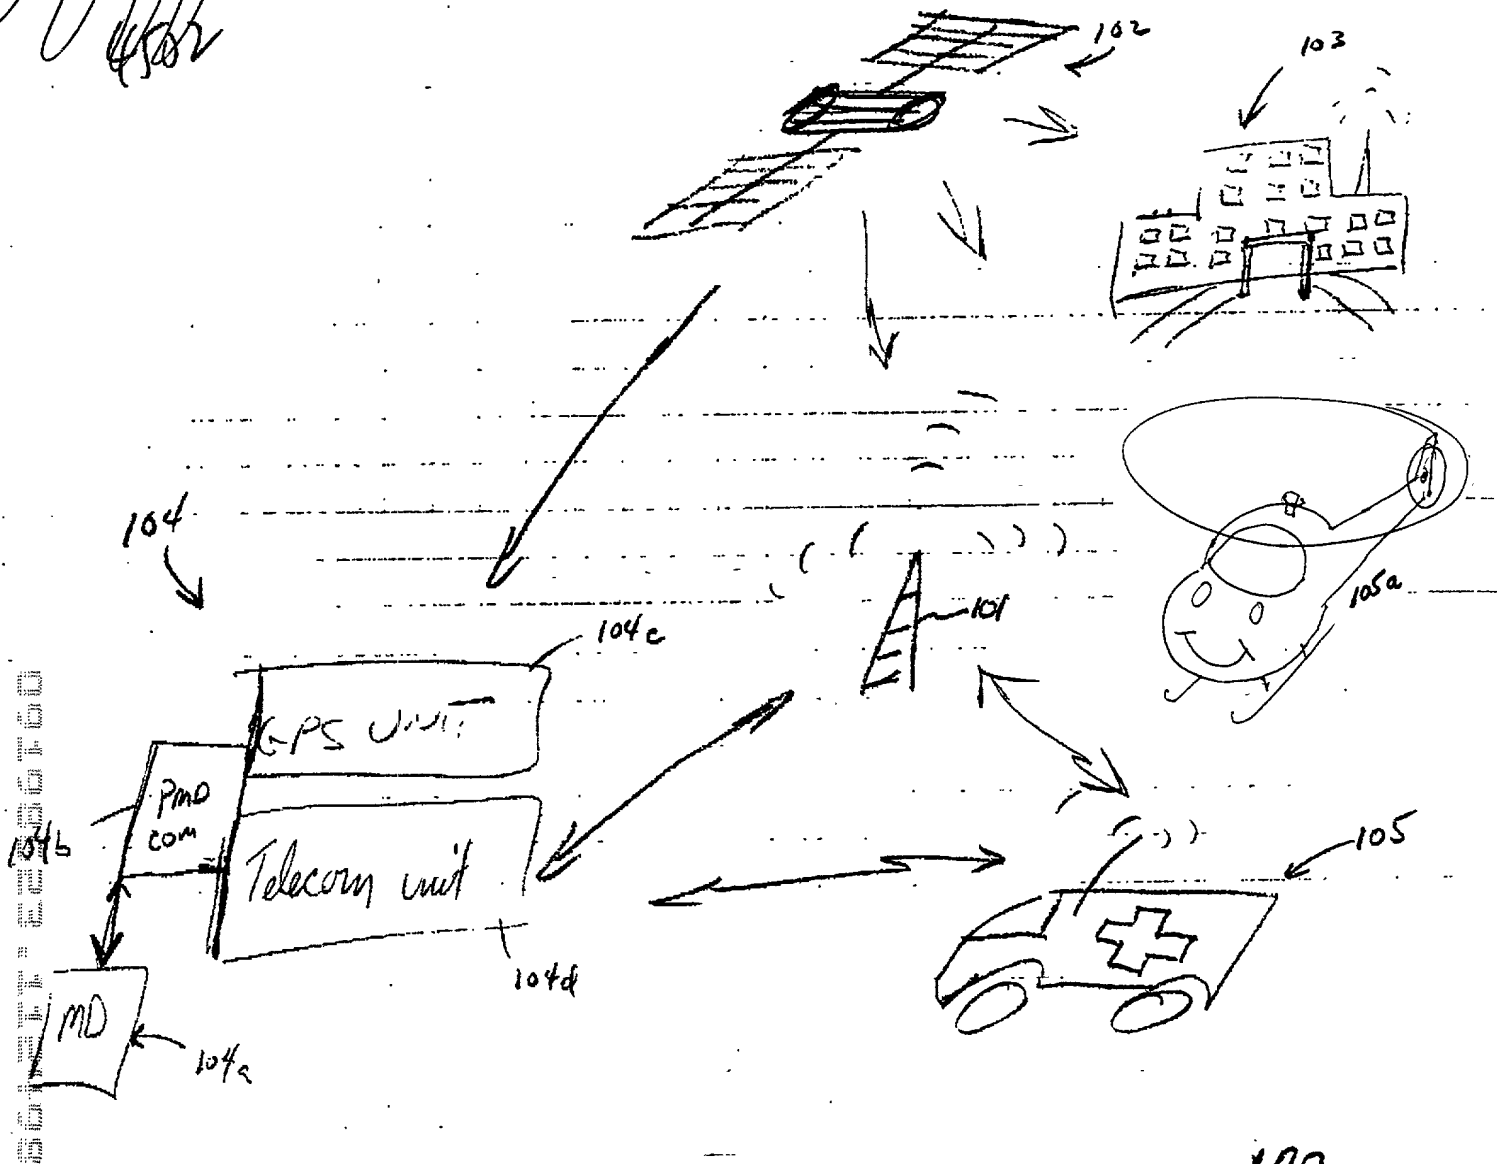 102
103
104
105a
101
104c
GPS Unit
PMD
com
104b
Telecom unit
105
104d
IMD
104a